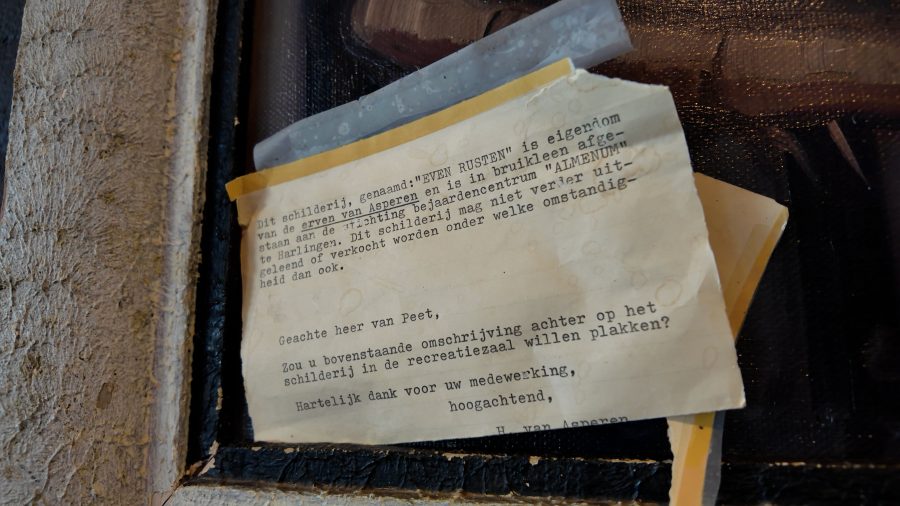 Dit schilderij, genaamd:"EVEN RUSTEN" is eigendom
van de erven van Asperen en is in bruikleen afge-
staan aan de stichting bejaardencentrum "ALMENUM"
te Harlingen. Dit schilderij mag niet verder uit-
geleend of verkocht worden onder welke omstandig-
heid dan ook.
Geachte heer van Peet,
Zou u bovenstaande omschrijving achter op het
schilderij in de recreatiezaal willen plakken?
Hartelijk dank voor uw medewerking,
hoogachtend,
H. van Asperen